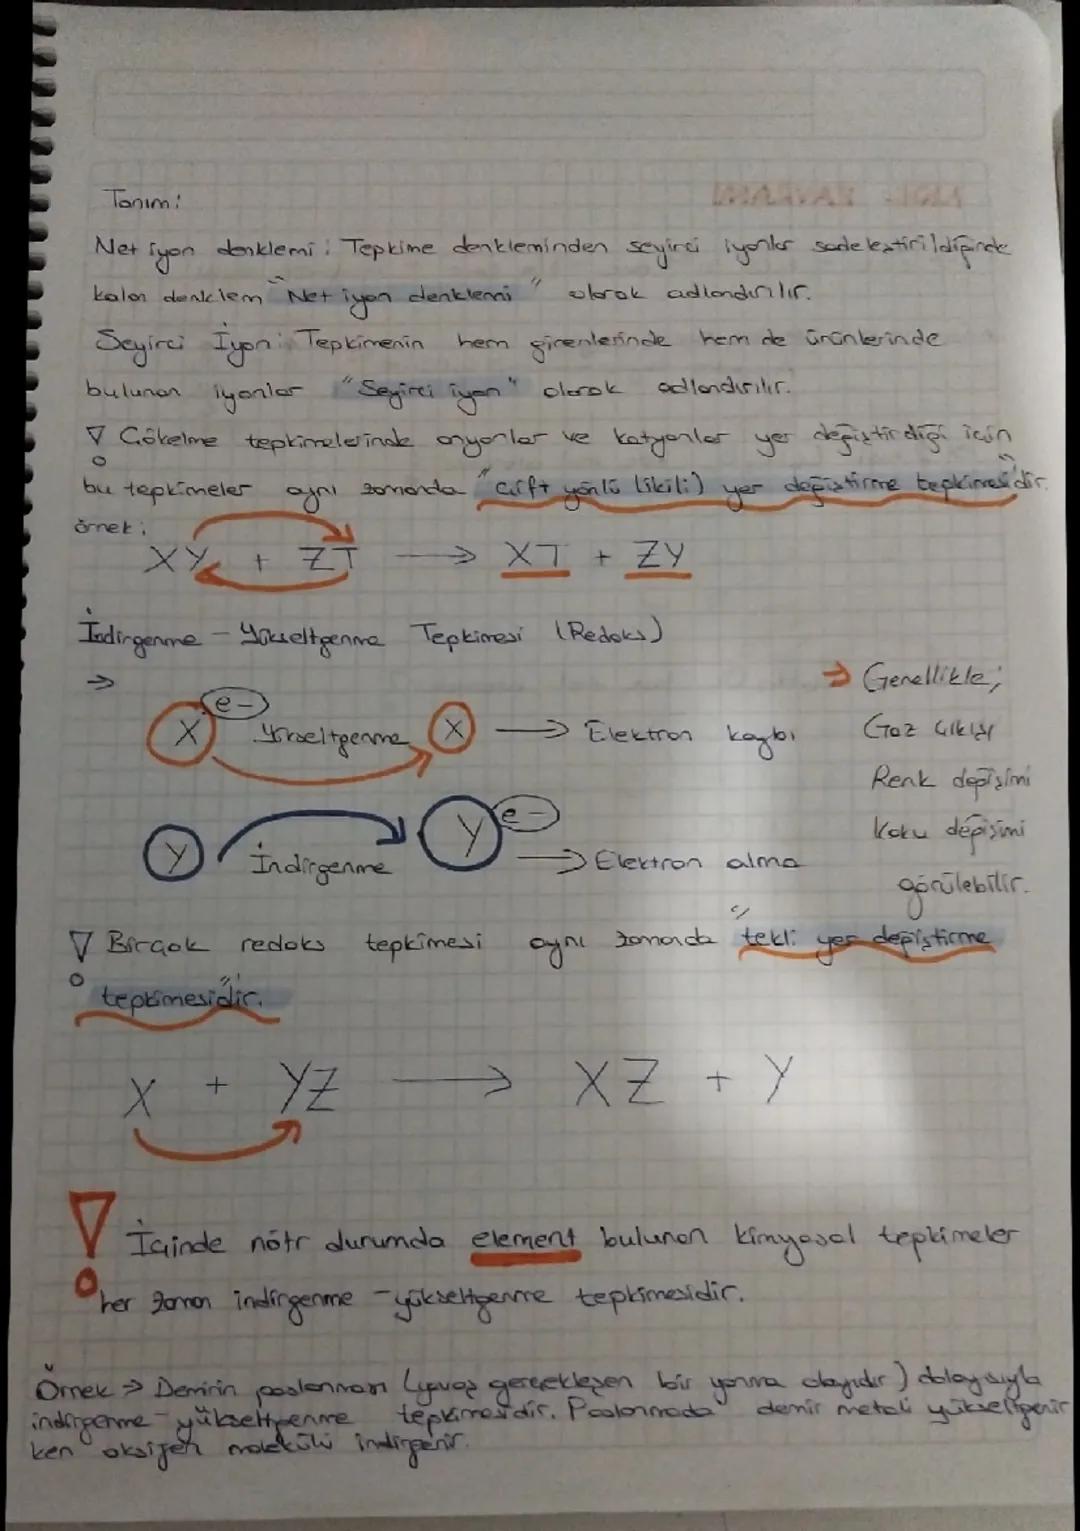 Tanım:
Net iyon denklemi: Tepkime denkleminden seyirci iyonlar sadeleştirildiğinde
kalan denklem "Net iyon denklemi" olarak adlandırılır.
Seyirci İyon: Tepkimenin hem girenlerinde hem de ürünlerinde
bulunan iyonlar "Seyirci iyon" olarak adlandırılır.
! Çökelme tepkimelerinde anyonlar ve katyonlar yer değiştirdiği için
bu tepkimeler aynı zamanda "çift yönlü (ikili) yer değiştirme tepkimesi"dir.
örnek:
XY + ZT → XT + ZY
İndirgenme - Yükseltgenme Tepkimesi (Redoks)
→
X e- Yükseltgenme X → Elektron kaybı
Y İndirgenme Y e- → Elektron alma
→ Genellikle;
Gaz çıkışı
Renk değişimi
Koku değişimi
görülebilir.
! Birçok redoks tepkimesi aynı zamanda "tekli yer değiştirme
tepkimesi"dir.
X + YZ → XZ + Y
! İçinde nötr durumda element bulunan kimyasal tepkimeler
her zaman indirgenme - yükseltgenme tepkimesidir.
Örnek → Demirin paslanması (yavaş gerçekleşen bir yanma olayıdır) dolayısıyla
indirgenme - yükseltgenme tepkimesidir. Paslanmada demir metali yükseltgenir
ken oksijen molekülü indirgenir.